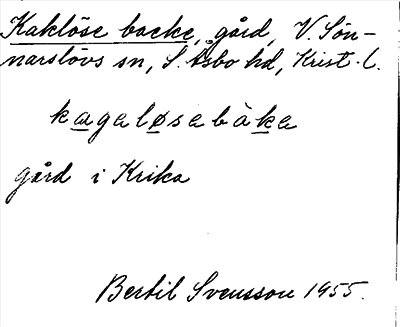 Kaklöse backe, gård, V. Sön-
narslövs sn, S. Åsbo hd, Krist. l.
kageløsebàke
gård i Krika
Bertil Svensson 1955.